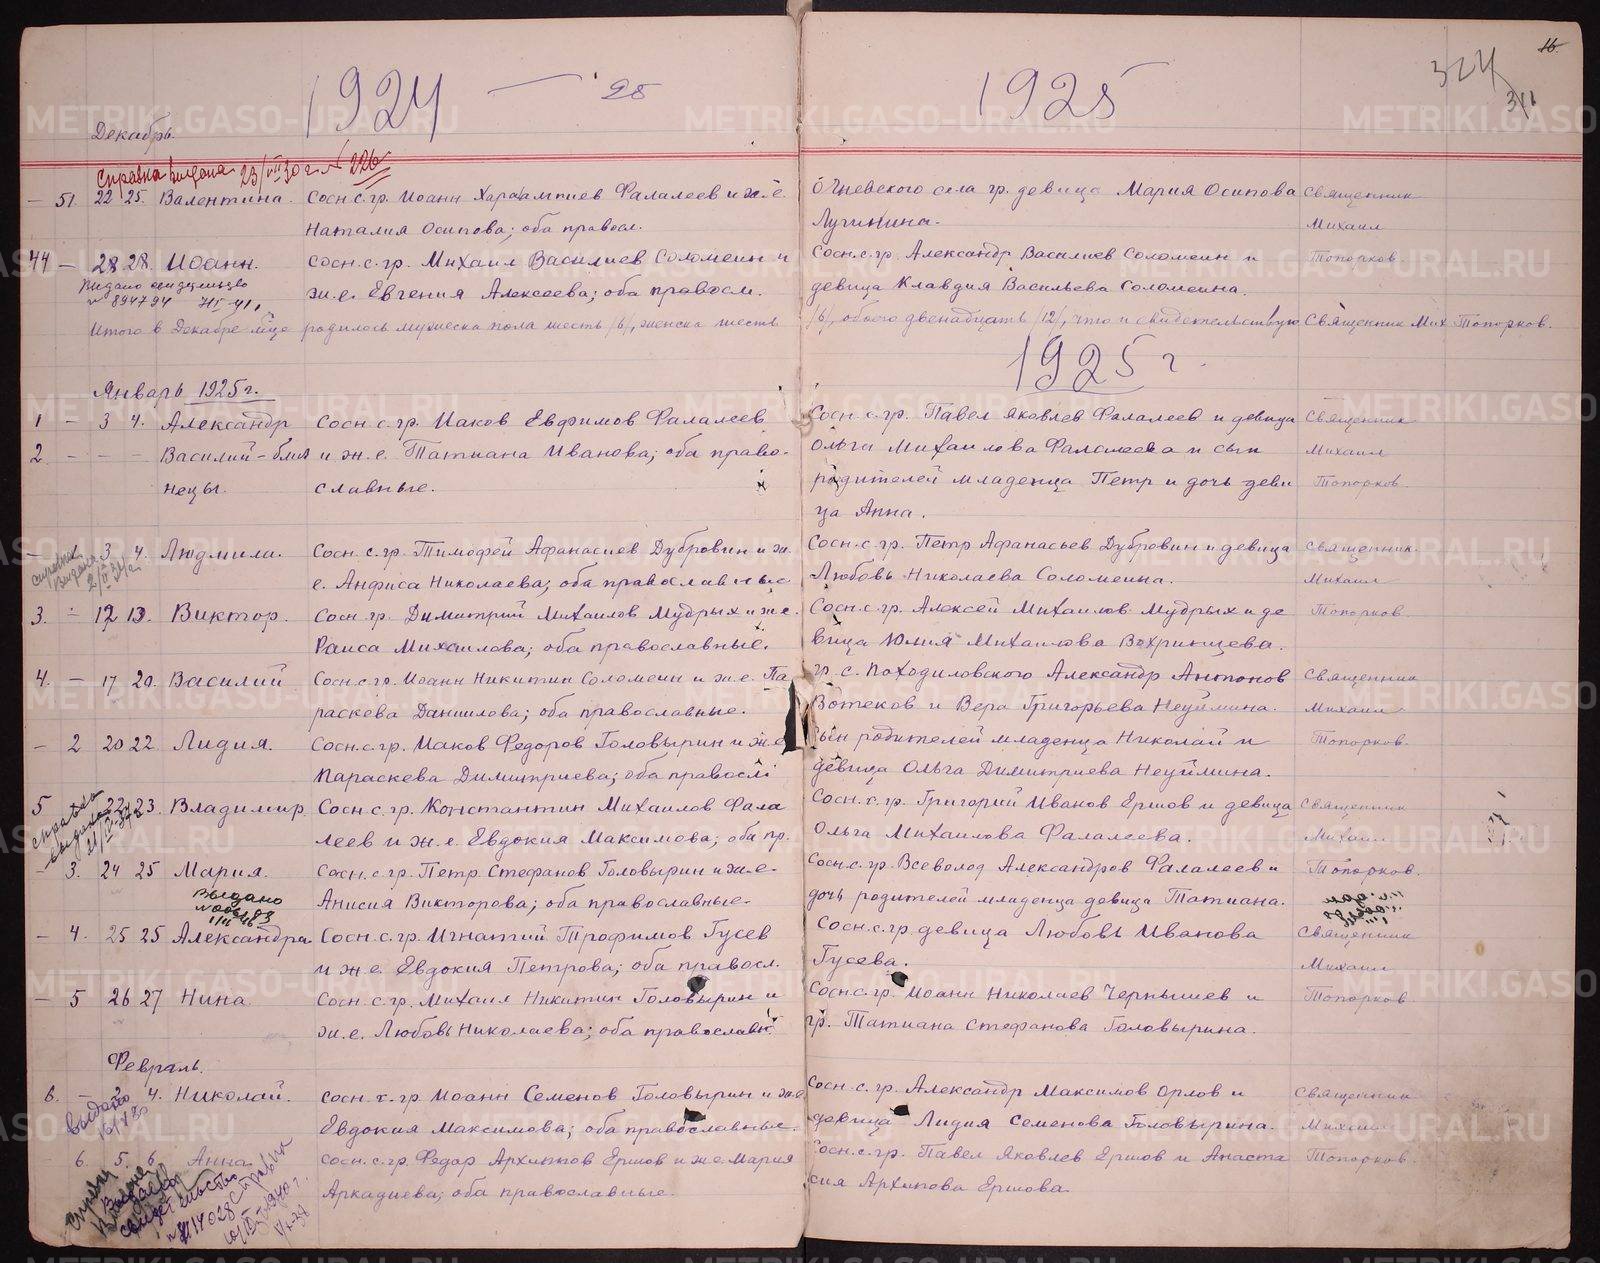 1924 — 25
1925
324
311
16.
Декабрь.
Справка выдана 23/VIII 30 г. № 226
— 51 22 25. Валентина. Сосн. с. гр. Иоанн Харлампиев Фалалеев и ж. е. Огневского села гр. девица Мария Осипова Священник
Наталия Осипова; оба правосл. Лугинина. Михаил
44 — 28 28. Иоанн. Сосн. с. гр. Михаил Василиев Соломеин и Сосн. с. гр. Александр Василиев Соломеин и Топорков.
Выдано свидетельство ж. е. Евгения Алексеева; оба правосл. девица Клавдия Васильева Соломеина.
№ 894794
Итого в Декабре м-це родилось мужеска пола шесть /6/, женска шесть /6/, обоего двенадцать /12/, что и свидетельствую Священник Мих Топорков.
1925 г.
Январь 1925 г.
1 — 3 4. Александр Сосн. с. гр. Иаков Евфимов Фалалеев Сосн. с. гр. Павел Яковлев Фалалеев и девица Священник
2 — — — Василий - близ и ж. е. Татиана Иванова; оба право- Ольга Михаилова Фалалеева и сын Михаил
нецы. славные. родителей младенца Петр и дочь деви Топорков.
ца Анна.
— 1 3 4. Людмила. Сосн. с. гр. Тимофей Афанасиев Дубровин и ж. Сосн. с. гр. Петр Афанасьев Дубровин и девица Священник.
справка выдана е. Анфиса Николаева; оба православные Любовь Николаева Соломеина. Михаил
3. — 12 13. Виктор. Сосн. гр. Димитрий Михаилов Мудрых и ж. е. Сосн. с. гр. Алексей Михаилов Мудрых и де Топорков.
Раиса Михаилова; оба православные. вица Юлия Михаилова Вахринцева.
4. — 17 20. Василий Сосн. с. гр. Иоанн Никитин Соломеин и ж. е. Па гр. с. Походиловского Александр Антонов Священник
раскева Даниилова; оба православные. Вотеков и Вера Григорьева Неуймина. Михаил
— 2 20 22. Лидия. Сосн. с. гр. Иаков Федоров Головырин и ж. е. сын родителей младенца Николай и Топорков.
Параскева Димитриева; оба правосл девица Ольга Димитриева Неуймина.
5 22 23. Владимир Сосн. с. гр. Константин Михаилов Фала Сосн. с. гр. Григорий Иванов Ершов и девица Священник
справка выдана леев и ж. е. Евдокия Максимова; оба пр. Ольга Михаилова Фалалеева. Михаил
— 3. 24 25 Мария. Сосн. с. гр. Петр Стефанов Головырин и ж. е. Сосн. с. гр. Всеволод Александров Фалалеев и Топорков.
Выдано Анисия Викторова; оба православные. дочь родителей младенца девица Татиана.
— 4. 25 25 Александра Сосн. с. гр. Игнатий Трофимов Гусев Сосн. с. гр. девица Любовь Иванова Священник
и ж. е. Евдокия Петрова; оба правосл. Гусева. Михаил
— 5 26 27 Нина. Сосн. с. гр. Михаил Никитин Головырин и Сосн. с. гр. Иоанн Николаев Чернышев и Топорков.
ж. е. Любовь Николаева; оба православн гр. Татиана Стефанова Головырина.
Февраль.
6. — 2 4. Николай. Сосн. с. гр. Иоанн Семенов Головырин и ж. е Сосн. с. гр. Александр Максимов Орлов и Священник
Выдано Евдокия Максимова; оба православные. девица Лидия Семенова Головырина. Михаил
6. 5. 6 Анна. Сосн. с. гр. Федор Архипов Ершов и ж. е. Мария Сосн. с. гр. Павел Яковлев Ершов и Анаста Топорков.
Аркадиева; оба православные. сия Архипова Ершова
свидетельство
METRIKI.GASO-URAL.RU